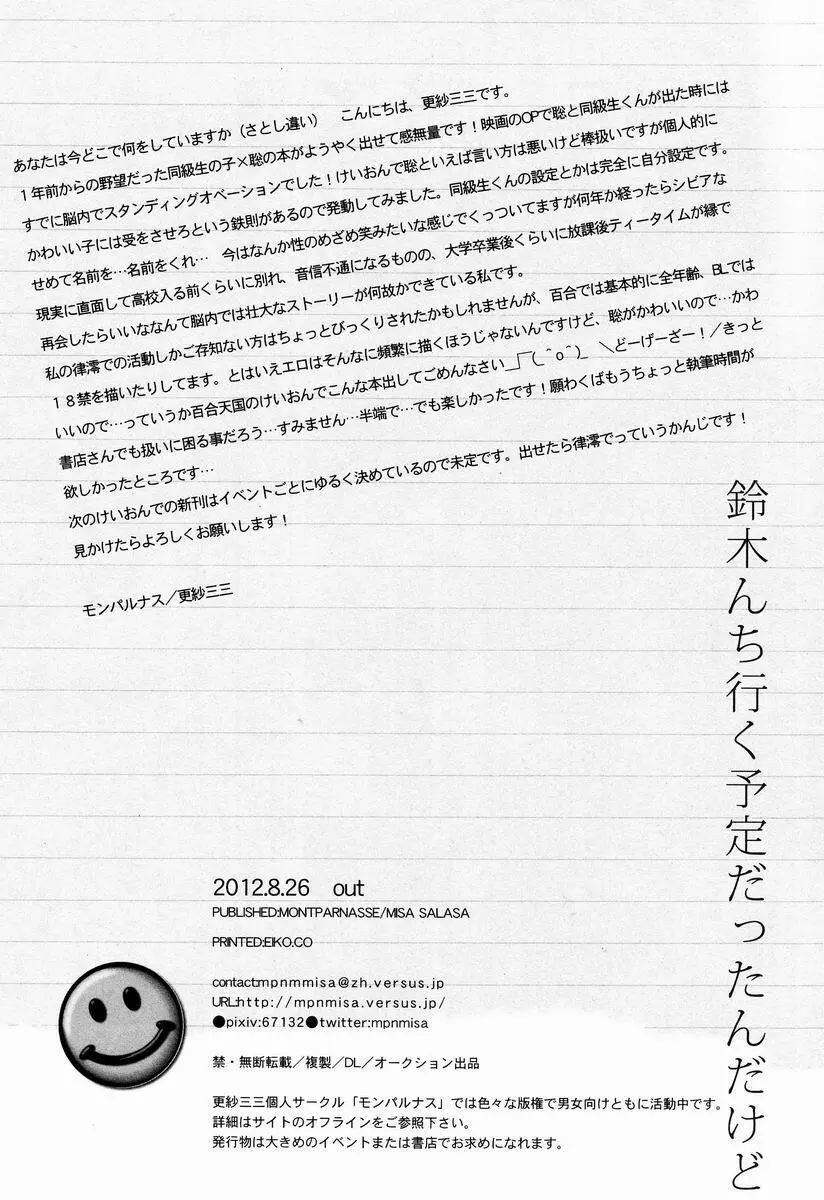 あなたは今どこで何をしていますか（さとし違い）　こんにちは、更紗三三です。
１年前からの野望だった同級生の子×聡の本がようやく出せて感無量です！映画のOPで聡と同級生くんが出た時には
すでに脳内でスタンディングオベーションでした！けいおんで聡といえば言い方は悪いけど棒扱いですが個人的に
かわいい子には受をさせろという鉄則があるので発動してみました。同級生くんの設定とかは完全に自分設定です。
せめて名前を…名前をくれ…　今はなんか性のめざめ笑みたいな感じでくっついてますが何年か経ったらシビアな
現実に直面して高校入る前くらいに別れ、音信不通になるものの、大学卒業後くらいに放課後ティータイムが縁で
再会したらいいななんて脳内では壮大なストーリーが何故かできている私です。
私の律澪での活動しかご存知ない方はちょっとびっくりされたかもしれませんが、百合では基本的に全年齢、BLでは
１８禁を描いたりしてます。とはいえエロはそんなに頻繁に描くほうじゃないんですけど、聡がかわいいので…かわ
いいので…っていうか百合天国のけいおんでこんな本出してごめんなさい_｣￣(_ﾟoﾟ)_　＼どーげーざー！／きっと
書店さんでも扱いに困る事だろう…すみません…半端で…でも楽しかったです！願わくばもうちょっと執筆時間が
欲しかったところです…
次のけいおんでの新刊はイベントごとにゆるく決めているので未定です。出せたら律澪でっていうかんじです！
見かけたらよろしくお願いします！
モンパルナス／更紗三三
鈴木んち行く予定だったんだけど
2012.8.26　out
PUBLISHED:MONTPARNASSE/MISA SALASA
PRINTED:EIKO.CO
contact:mpnmmisa@zh.versus.jp
URL:http://mpnmisa.versus.jp/
●pixiv:67132●twitter:mpnmisa
禁・無断転載／複製／DL／オークション出品
更紗三三個人サークル「モンパルナス」では色々な版権で男女向けともに活動中です。
詳細はサイトのオフラインをご参照下さい。
発行物は大きめのイベントまたは書店でお求めになれます。